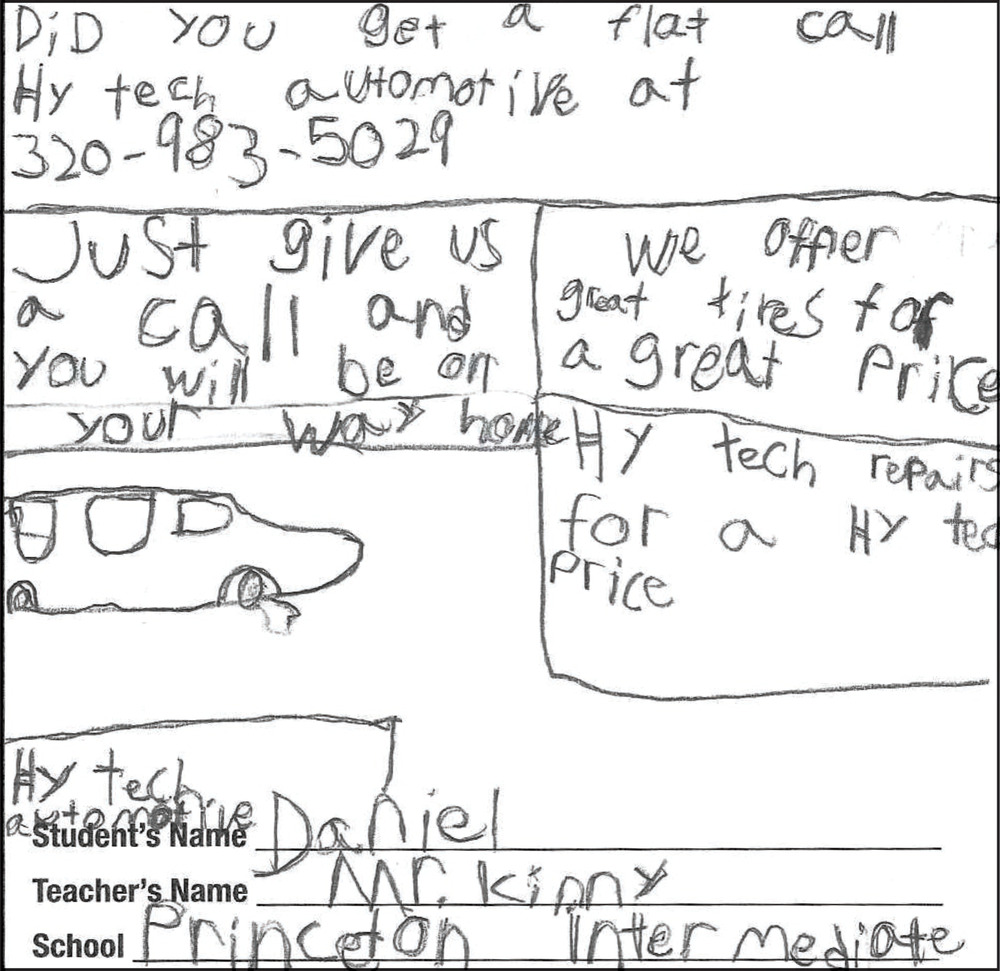 DiD YOU get a flat call
Hy tech automotive at
320-983-5029
Just give us
a call and
you will be on
your way home
We offer
great tires for
a great Price
Hy tech repairs
for a Hy tec
Price
Hy tech
automotive
Student's Name Daniel
Teacher's Name Mr. Kinny
School Princeton Intermediate